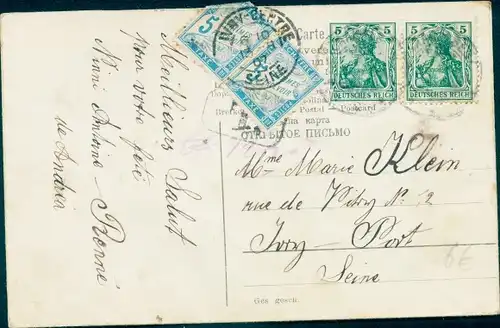 Meilleurs Salut
pour votre fête
Ninni Antoine - Pierre
de Andrea
5
IVRY-CENTRE
SEINE
Carte
5 5
DEUTSCHES REICH DEUTSCHES REICH
Postal - Postcard
ОТКРЫТОЕ ПИСЬМО
Mme Marie Klein
rue de Vitry No 2
Ivry - Port
Seine
6€
Ges gesch.